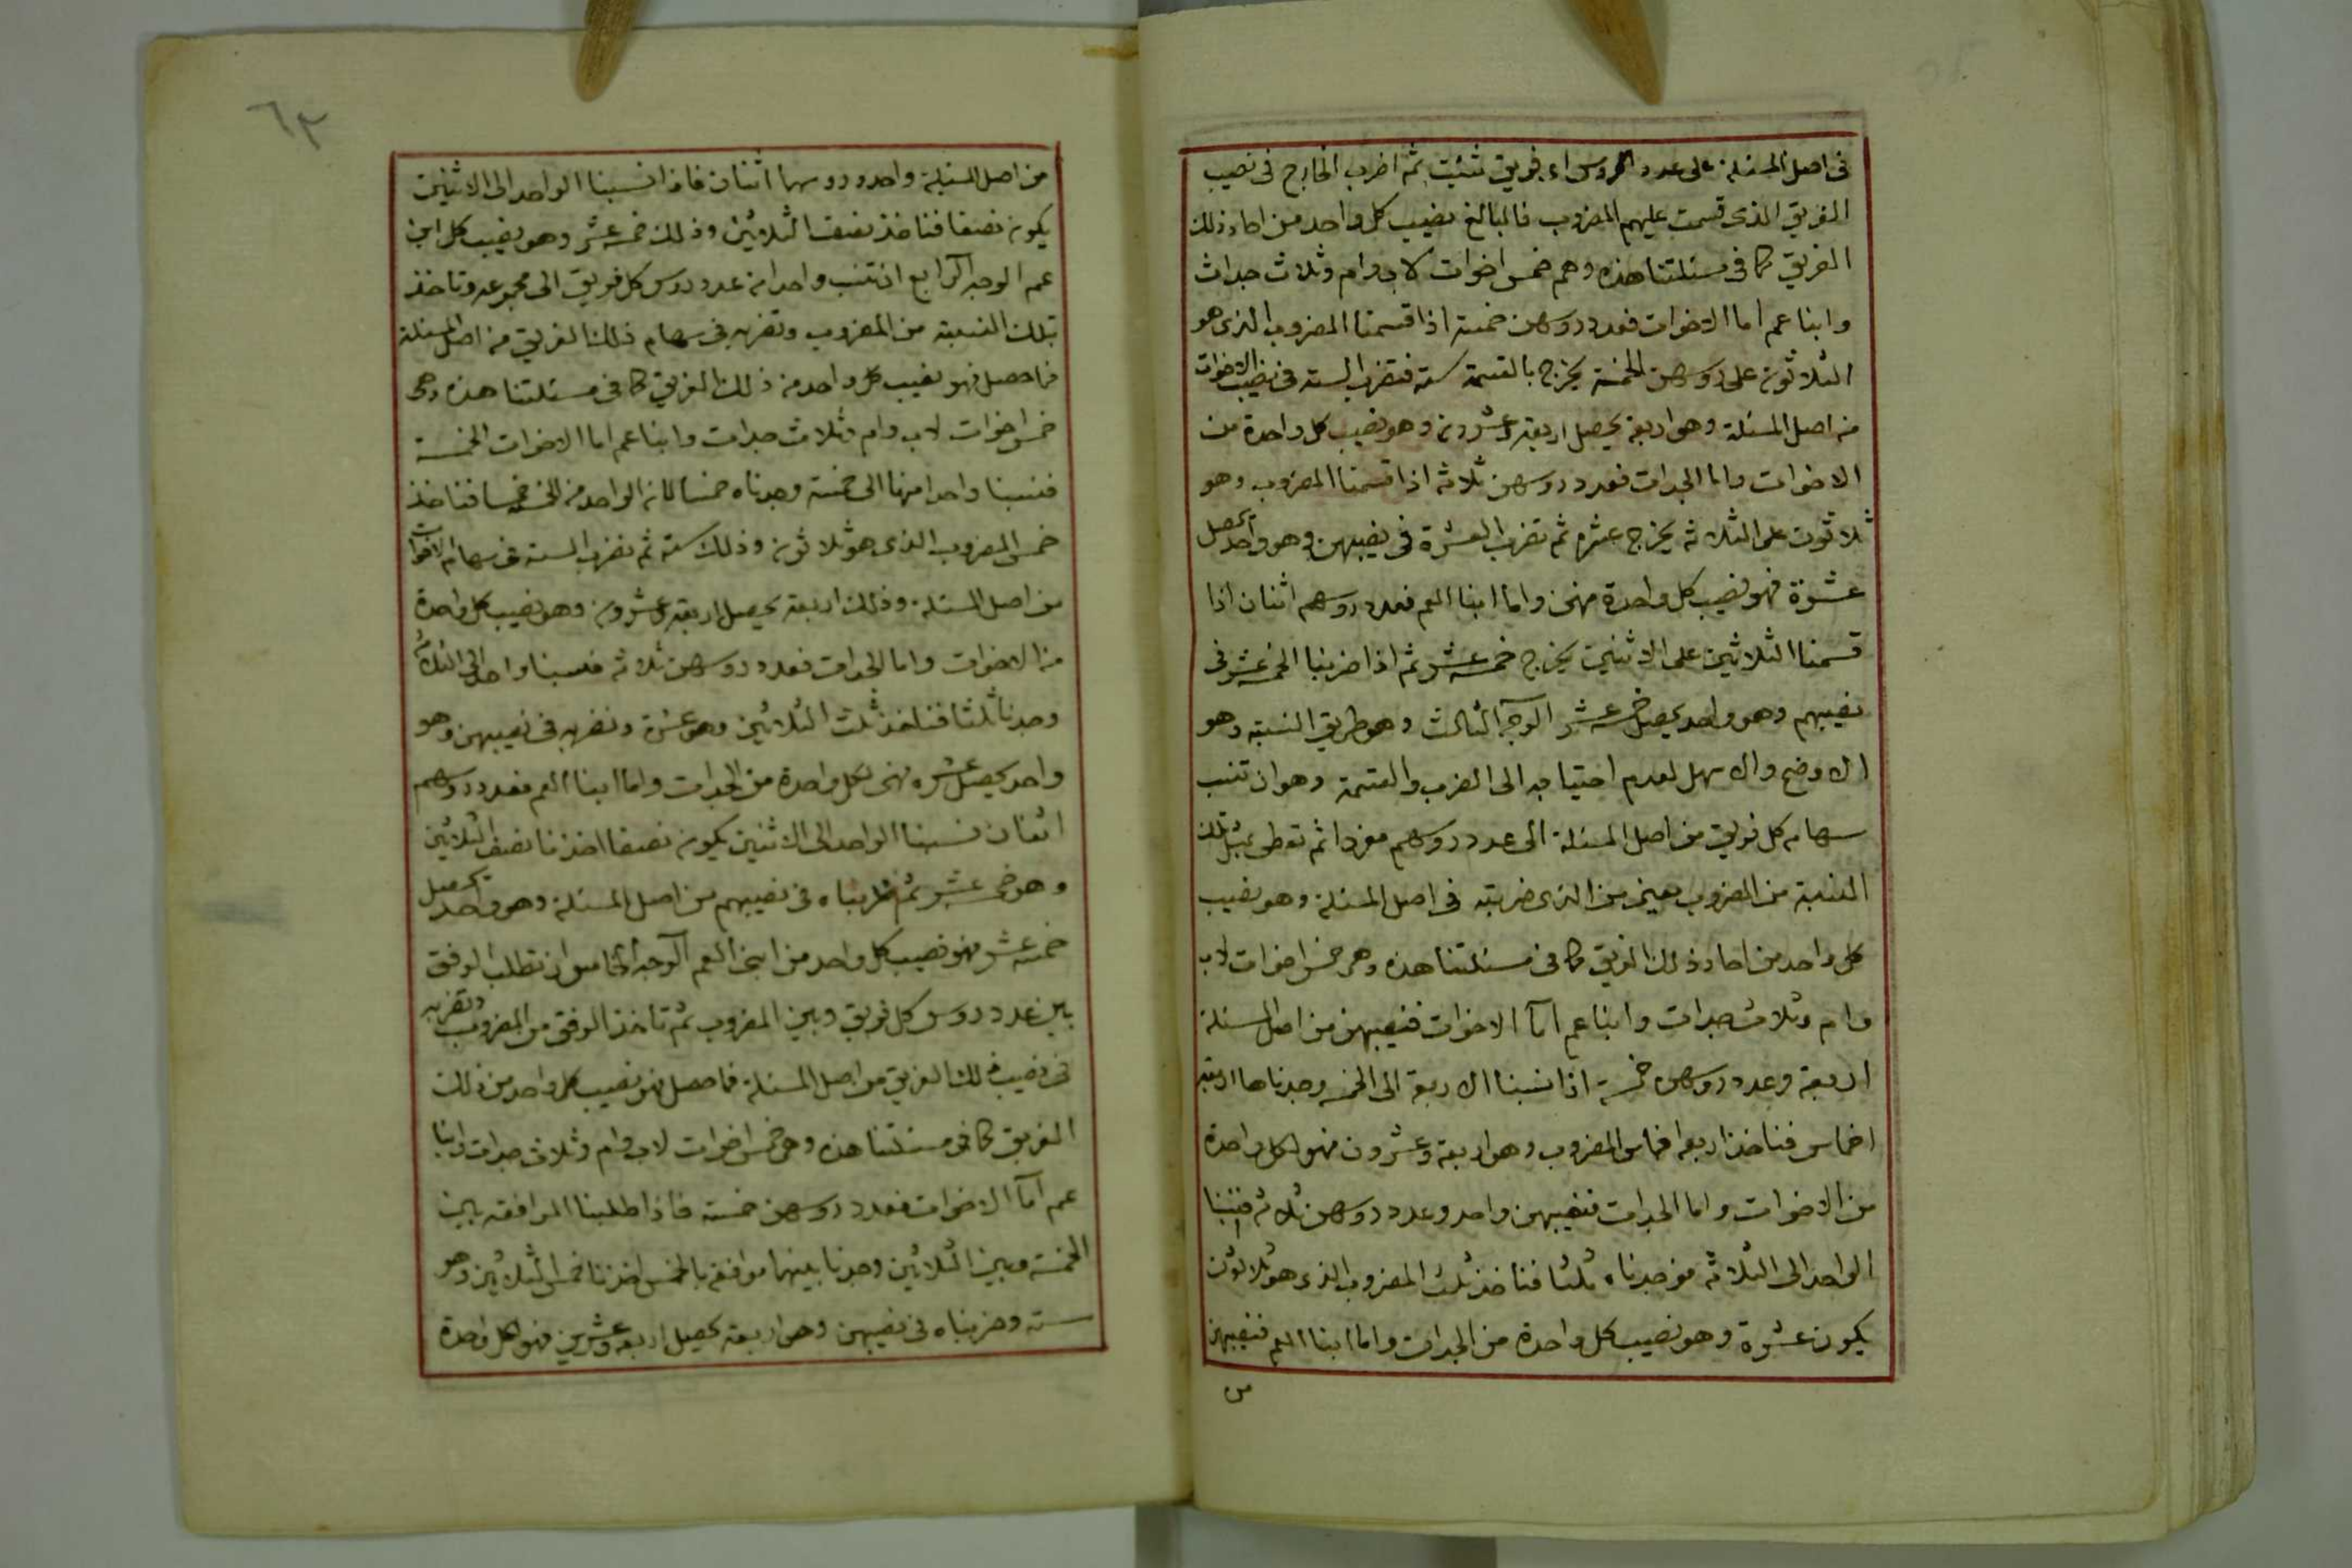 فى اصل المسئلة على عدد الروس اى فريق شئيت ثم اضرب الخارج فى نصيب
الفريق الذى قسمت عليهم المضروب فالبالغ نصيب كل واحد من احاد ذلك
الفريق كما فى مسئلتنا هذه وهم خمس اخوات لاب وام وثلاث جدات
وابنا عم اما الاخوات فعدد روسهن خمسة اذا قسمنا المضروب الذى هو
الثلاثون على روسهن الخمسة يخرج بالقسمة ستة فتضرب الستة فى نصيب الاخوات
من اصل المسئلة وهى اربعة يحصل اربعة وعشرون وهو نصيب كل واحدة من
الاخوات واما الجدات فعدد روسهن ثلاثة اذا قسمنا المضروب وهو
ثلاثون على الثلاثة يخرج عشرة ثم تضرب العشرة فى نصيبهن وهو واحد يحصل
عشرة فهو نصيب كل واحدة منهن واما ابنا العم فعدد روسهم اثنان اذا
قسمنا الثلاثين على الاثنين يخرج خمسة عشر ثم اذا ضربنا الخمسة عشر فى
نصيبهم وهو واحد يحصل خمسة عشر الوجه الثالث وهو طريق النسبة وهو
الاوضح والاسهل لعدم احتياجه الى الضرب والقسمة وهو ان تنسب
سهام كل فريق من اصل المسئلة الى عدد روسهم مفردا ثم تعطى بمثل تلك
النسبة من المضروب يعنى من الذى ضربته فى اصل المسئلة وهو نصيب
كل واحد من احاد ذلك الفريق كما فى مسئلتنا هذه وهم خمس اخوات لاب
وام وثلاث جدات وابنا عم اما الاخوات فنصيبهن من اصل المسئلة
اربعة وعدد روسهن خمسة اذا نسبنا الاربعة الى الخمسة وجدناها اربعة
اخماس فناخذ اربعة اخماس المضروب وهو اربعة وعشرون فهو لكل واحدة
من الاخوات واما الجدات فنصيبهن واحد وعدد روسهن ثلاثة فنسبنا
الواحد الى الثلاثة فوجدناه ثلثا فناخذ ثلث المضروب الذى هو ثلاثون
يكون عشرة وهو نصيب كل واحدة من الجدات واما ابنا العم فنصيبهن
من
٦٣
من اصل المسئلة واحد وروسهما اثنان فاذا نسبنا الواحد الى الاثنين
يكون نصفا فناخذ نصف الثلاثين وذلك خمسة عشر وهو نصيب كل ابن
عم الوجه الرابع ان تنسب واحدا من عدد روس كل فريق الى مجموعه وتاخذ
بتلك النسبة من المضروب وتضربه فى سهام ذلك الفريق من اصل المسئلة
فما حصل فهو نصيب كل واحد من ذلك الفريق كما فى مسئلتنا هذه وهى
خمس اخوات لاب وام وثلاث جدات وابنا عم اما الاخوات الخمسة
فنسبنا واحدا منها الى خمسة وجدناه خمسا لانه الواحد من الخمسة خمسا فناخذ
خمس المضروب الذى هو ثلاثون وذلك ستة ثم نضرب الستة فى سهام الاخوات
من اصل المسئلة وذلك اربعة يحصل اربعة وعشرون وهو نصيب كل واحدة
من الاخوات واما الجدات فعدد روسهن ثلاثة فنسبنا واحد الى الثلاثة
وجدنا ثلثا فناخذ ثلث الثلاثين وهو عشرة ونضربه فى نصيبهن وهو
واحد يحصل عشرة فهى لكل واحدة من الجدات واما ابنا العم فعدد روسهم
اثنان نسبنا الواحد الى الاثنين يكون نصفا اخذنا نصف الثلاثين
وهو خمسة عشر ثم ضربناه فى نصيبهم من اصل المسئلة وهو واحد يحصل
خمسة عشر فهو نصيب كل واحد من ابنى العم الوجه الخامس ان تطلب الوفق
بين عدد روس كل فريق وبين المضروب ثم تاخذ الوفق من المضروب وتضربه
فى نصيب ذلك الفريق من اصل المسئلة فما حصل فهو نصيب كل واحد من ذلك
الفريق كما فى مسئلتنا هذه وهى خمس اخوات لاب وام وثلاث جدات وابنا
عم اما الاخوات فعدد روسهن خمسة فاذا طلبنا الموافقة بين
الخمسة وبين الثلاثين وجدنا بينهما موافقة بالخمس اخذنا خمس الثلاثين وهو
ستة وضربناه فى نصيبهن وهى اربعة يحصل اربعة وعشرين فهو لكل واحدة